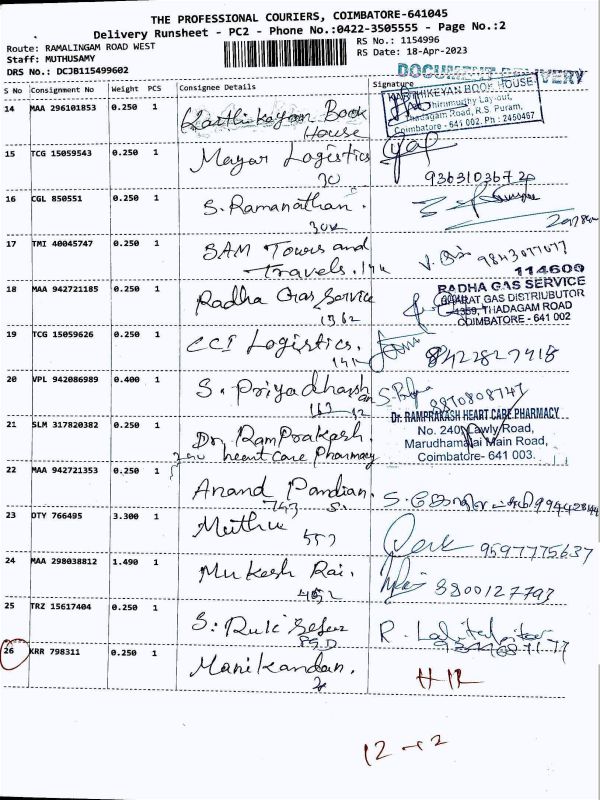 THE PROFESSIONAL COURIERS, COIMBATORE-641045
Delivery Runsheet - PC2 - Phone No.:0422-3505555 - Page No.:2
Route: RAMALINGAM ROAD WEST
RS No.: 1154996
Staff: MUTHUSAMY
RS Date: 18-Apr-2023
DRS No.: DCJB115499602
DOCUMENT DELIVERY
S No Consignment No Weight PCS Consignee Details Signature
14 MAA 296101853 0.250 1 Karthikeyan Book
House
KARTHIKEYAN BOOK HOUSE
Thirumurthy Lay-out,
Thadagam Road, R.S. Puram,
Coimbatore - 641 002. Ph : 2450467
15 TCG 15059543 0.250 1 Mayar Logistics
30
9363103672
16 CGL 850551 0.250 1 S. Ramanathan.
17 TMI 40045747 0.250 1 SAM Tours and
Travels.
9843077077
114600
18 MAA 942721185 0.250 1 Radha Gas Service
1362
RADHA GAS SERVICE
BHARAT GAS DISTRIUBUTOR
1359, THADAGAM ROAD
COIMBATORE - 641 002
19 TCG 15059626 0.250 1 CCI Logistics.
8422827418
20 VPL 942086989 0.400 1 S. Priyadharsh
an
S. Priya 8870808747
21 SLM 317820382 0.250 1 Dr. RamPrakash.
240 heart care Pharmacy
Dr. RAMPRAKASH HEART CARE PHARMACY
No. 240, Lawly Road,
Marudhamalai Main Road,
Coimbatore- 641 003.
22 MAA 942721353 0.250 1 Anand Pandian.
743 S.
23 OTY 766495 3.300 1 Muthu
557
9597775637
24 MAA 298038812 1.490 1 Mukesh Rai.
25 TRZ 15617404 0.250 1 S.
R.
26 KRR 798311 0.250 1 Manikandan.
12 → 2